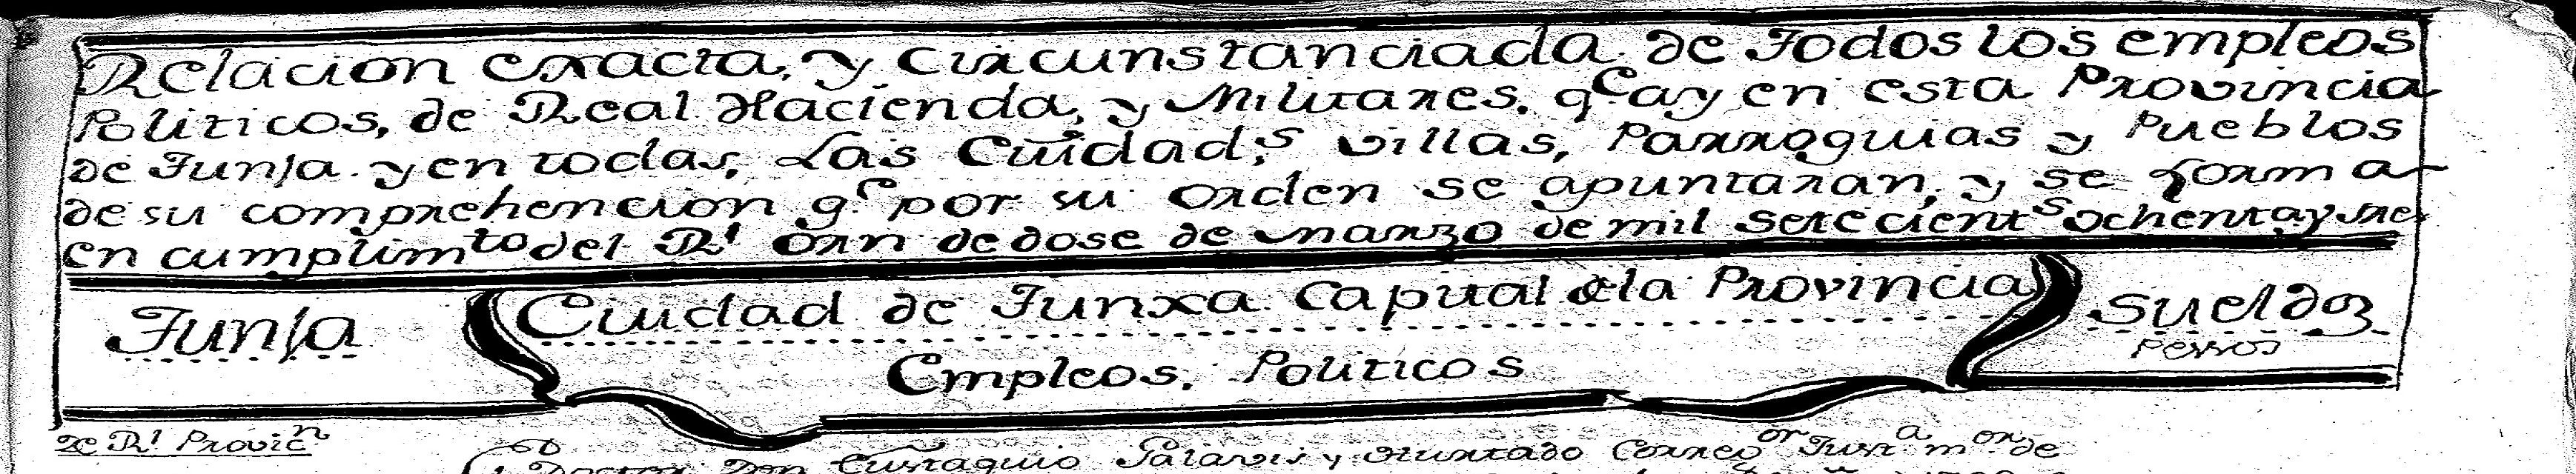 Relacion exacta, y circunstanciada de Todos los empleos
Politicos, de Real Hacienda, y Militares, q.e ay en esta Provincia
de Tunja y en todas, Las Cuidad.s villas, Parroquias y Pueblos
de su comprehencion q.e por su orden se apuntaran, y se forma
en cumplim.to del R.l Orn de dose de Marzo de mil setecient.s ochenta y tres
Tunja
Ciudad de Tunxa Capital de la Provincia
Sueldos
Pessos
Empleos, Politicos
De R.l Provic.n
Doctor Don Eustaquio Galavis y Hurtado Correg.or Just.a m.or de